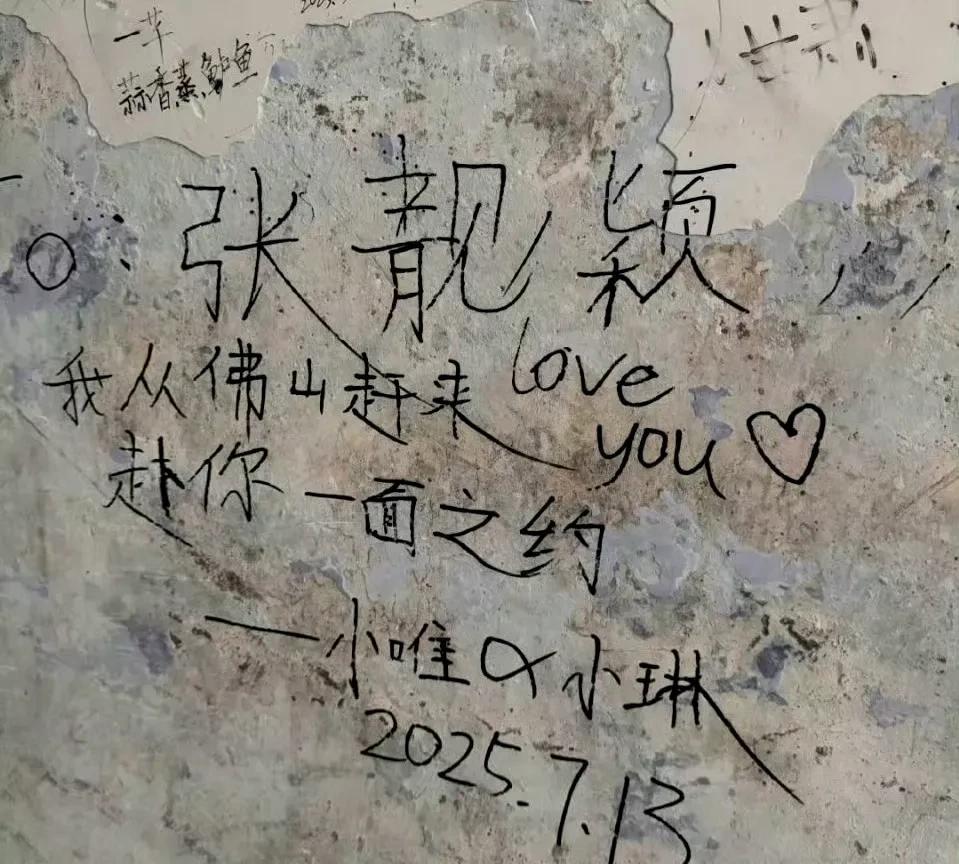 一芊
蒜香蒸鲈鱼
To: 张靓颖
我从佛山赶来 love
赴你一面之约 you♡
——小唯 & 小琳
2025.7.13